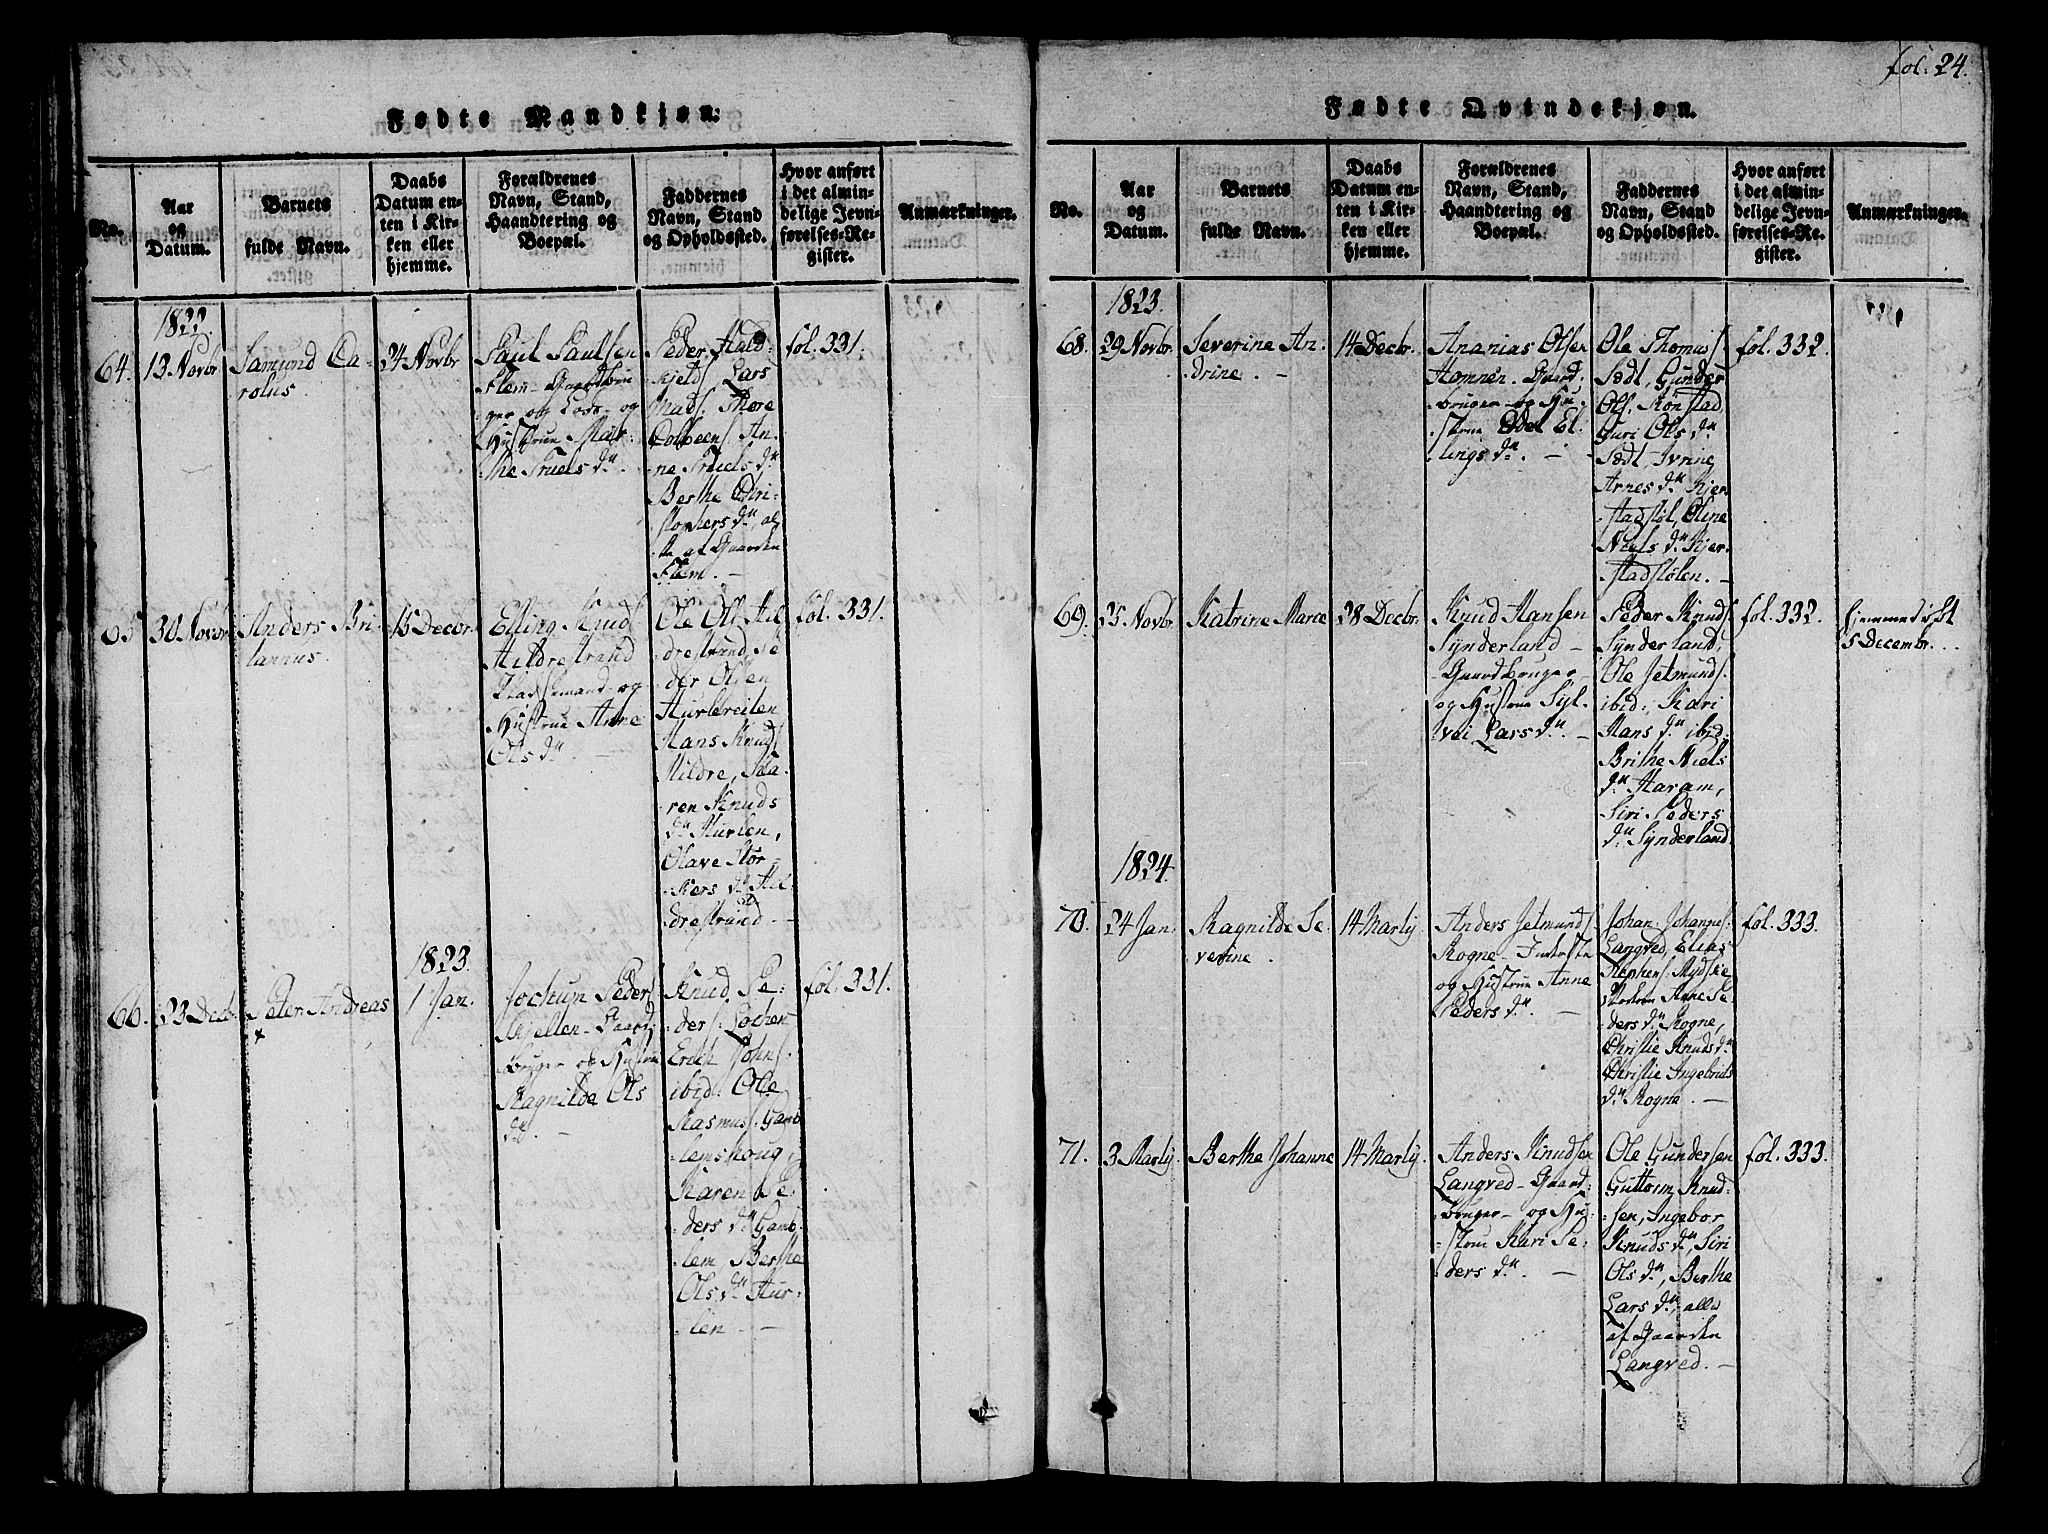 Fødte Mandkjøn.
No.
Aar
og
Datum.
Barnets
fulde Navn.
Daabs
Datum en-
ten i Kir-
ken eller
hjemme.
Forældrenes
Navn, Stand,
Haandtering og
Boepæl.
Faddernes
Navn, Stand
og Opholdssted.
Hvor anført
i det almin-
delige Jevn-
førelses-Re-
gister.
Anmærkninger.
1822.
64.
13 Novbr
Samund Ca-
rolus.
24 Novbr
Paul Paulsen
Flem - Gaardbru
ger og Lods - og
Hustrue Mar-
the Truels dr.
Peder Hald-
Kjelds. Lars
Mads. Thore
Colbeens. An-
ne Truels dr
Berthe Chri-
stophers dr, al-
le af Gaarden
Flem. -
fol. 331.
65
30 Novbr
Anders Bri-
tannus.
15 Decbr.
Elling Knuds
Hildrestrand
Pladsemand og
Hustrue Anne
Ols dr. -
Ole Ols. Hil
drestrand, Pe-
der Olsen
Hurlbreiten
Hans Knuds
Hildre, Ma-
ren Knuds
dr Hurlen,
Olave Stor-
kers dr Hil-
drestrand. -
fol. 331.
1823.
66.
23 Decbr.
Peter Andreas
1 Jan.
Jochum Peders
Kjelten - Gaard
bruger og Hustrue
Ragnilde Ols
dr. -
Knud Pe-
ders. Lochen
Erich Johns.
ibid: Ole
Rasmus. Gamb
lemshoug,
Karen Pe-
ders dr Gamb-
lem, Berthe
Ols dr Hur-
len -
fol. 331.
fol. 24.
Fødte Qvindekjøn.
No.
Aar
og
Datum.
Barnets
fulde Navn.
Daabs
Datum en-
ten i Kir-
ken eller
hjemme.
Forældrenes
Navn, Stand,
Haandtering og
Boepæl.
Faddernes
Navn, Stand
og Opholdssted.
Hvor anført
i det almin-
delige Jevn-
førelses-Re-
gister.
Anmærkninger.
1823.
68.
29 Novbr.
Severine An-
drine. -
14 Decbr.
Ananias Olsen
Homnen - Gaard-
bruger og Hu-
strue Edel El-
lings dr. -
Ole Thomas.
Sædt, Gunder
Ols. Rønstad
Guri Ols dr
Sædt, Ivrine
Arnes dr Kjer-
stadstøl, Oline
Niels dr Kjer-
stadstølen. -
fol. 332.
69.
25 Novbr.
Katrine Maree
28 Decbr.
Knud Hansen
Synderland -
Gaardbruger -
og Hustrue Syl-
vei Lars dr. -
Peder Knuds.
Synderland,
Ole Jetmunds.
ibid:, Kari
Hans dr ibid:
Brithe Niels
dr Haram,
Siri Peders
dr Synderland
fol. 332.
hjemmedøbt
5 Decembr.
1824.
70.
24 Jan.
Ragnilde Se-
verine.
14 Martij.
Anders Jetmunds.
Rogne - Inderste
og Hustrue Anne
Peders dr. -
Johan Johannes.
Langved, Elias
Stephens.
Anne Pe-
ders dr Rogne,
Christie Knuds dr
Christie Ingebrits
dr Rogne. -
fol. 333.
71.
3 Martij.
Berthe Johanne
14 Martij.
Anders Knudsen
Langved - Gaard-
bruger - og Hu-
strue Kari Pe-
ders dr. -
Ole Gundersen
Guttorm Knud-
sen, Ingebor
Knuds dr, Siri
Ols dr, Berthe
Lars dr, alle
af Gaarden
Langved. -
fol. 333.